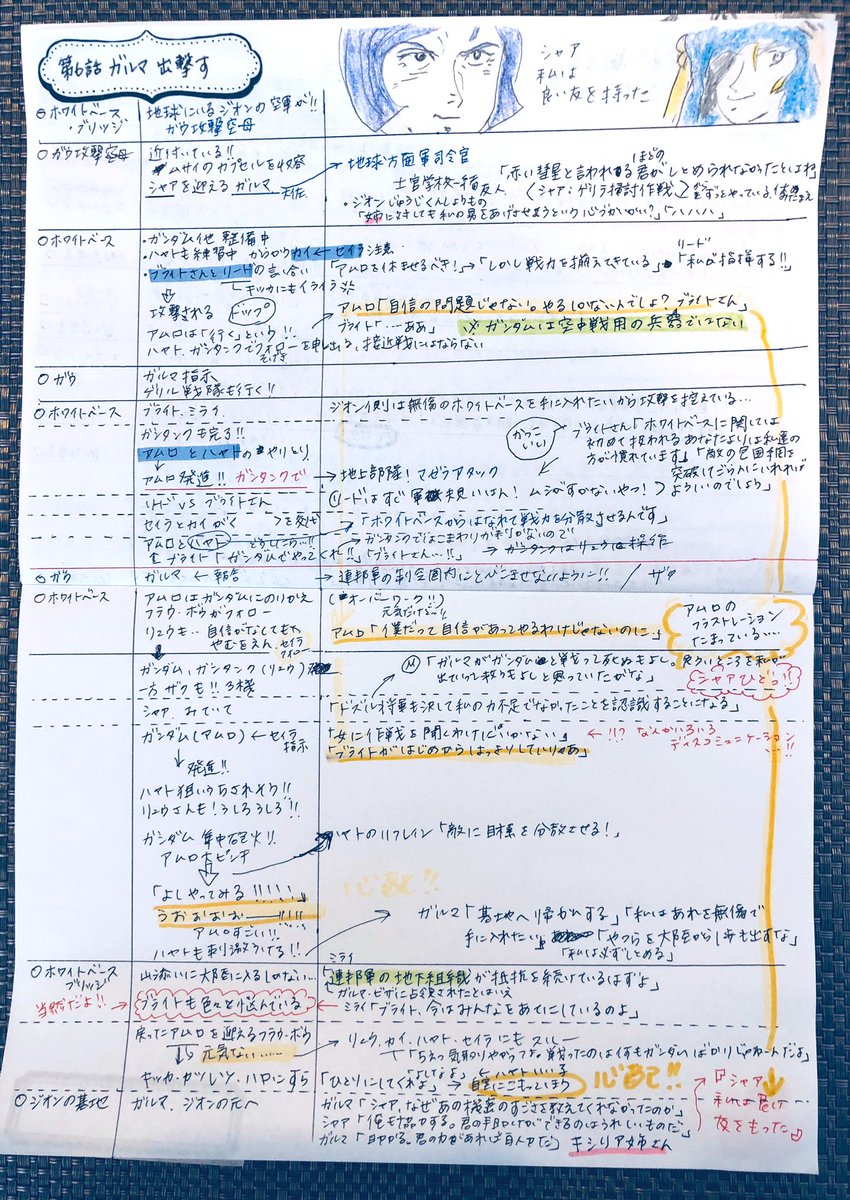 第6話 ガルマ 出撃す
シャア
私は
良い友を持った
○ホワイトベース
・ブリッジ
地球にいるジオンの空軍が!!
ガウ攻撃空母
○ガウ攻撃空母
近付いている!!
ムサイのカプセルを収容
シャアを迎える ガルマ
大佐
地球方面軍司令官
士官学校一緒 友人
「赤い彗星と言われるほどの君がしとめられなかったことはね」
(シャア:ゲリラ掃討作戦)
・ジオンじゅうじくんしょうもの
「姉に対しても私の男をあげさせようという心づかいかい?」「ハハハ」
○ホワイトベース
・ガンダム他 整備中
・ハヤトも練習中 からかうカイ ← セイラ 注意
・ブライトさんとリードの言い合い
キッカにもイライラ
攻撃される ドップ
アムロは「行く」という!!
ハヤト、ガンタンクでフォローを申し出る、接近戦にはならない
「アムロを休ませるべき!」→「しかし戦力を揃えてきている」
リード
「私が指揮する!!」
アムロ「自信の問題じゃない。やるしかないんでしょ?ブライトさん」
ブライト「……ああ」
※ガンダムは空中戦用の兵器ではない
○ガウ
ガルマ指示
ゲリル戦隊も行く!!
○ホワイトベース
ブライト、ミライ
ジオン側は無傷のホワイトベースを手に入れたいから攻撃を控えている…
ガンタンクも完了!!
アムロとハヤトのやりとり
アムロ発進!! ガンタンクで
かっこいい
ブライトさん「ホワイトベースに関しては
初めて扱われるあなたよりは私達の
方が慣れています」「敵の包囲網を
突破してジャブローに入れれば
よろしいのでしょう」
→地上部隊!マゼラアタック
リードはすぐ軍規いはん!ムシがすかないやつ!
リード VS ブライトさん
セイラとカイがく
>を交代
「ホワイトベースからはなれて戦力を分散させるんです」
アムロとハヤト どうしたら…!!
ガンタンクではこまわりがきかないので
ブライト「ガンダムでやってくれ!!」「ブライトさん…!!」
→ガンタンクはリュウは操作
○ガウ
ガルマ ← 報告
→連邦軍の制空圏内にとびこませないように!! / ザク
○ホワイトベース
アムロはガンダムにのりかえ
フラウ・ボウがフォロー
リュウも…自信がなくてもや
やむをえん
(オーバーワーク!!)
元気だけど…!!
アムロ「僕だって自信があってやるわけじゃないのに」
アムロの
フラストレーション
たまっている…
ガンダム、ガンタンク(リュウ)
一方 ザクも!! 3機
「ガルマがガンダムと戦って死ぬもよし。危ういところを私が
出ていって救うもよしと思っていたがな」
シャアひどっ!!
シャア みていて
「ドズル将軍も決して私の力不足でなかったことを認識することになる」
ガンダム(アムロ) ← セイラ
指示
「女に作戦を聞くわけにいかない」
「ブライトがはじめからはっきりしていりゃあ」
←!!? なんかいろいろ
ディスコミュニケーション
…!!
発進!!
ハヤト狙いうちされそう!!
リュウさんも!うしろうしろ!!
ガンダム 集中砲火!!
アムロ大ピンチ
ハヤトのリフレイン「敵に目標を分散させる!」
「よしやってみる!!!!」
うおおおおー!!!!
アムロすごい!!
ハヤトも刺激うける!!
ガルマ「基地へ帰かんする」「私はあれを無傷で
手に入れたい」「やつらを大陸から1歩も出すな」
「私は必ずしとめる」
○ホワイトベース
ブリッジ
山添いに大陸に入るしかない…
ミライ
「連邦軍の地下組織が抵抗を続けているはずよ」
ガルマ・ザビに占領されたとはいえ
当然だよ!!
ブライトも色々と悩んでいる
ミライ「ブライト、今はみんなあなたをあてにしているのよ」
戻ったアムロを迎えるフラウ・ボウ
元気ない……
リュウ、カイ、ハヤト、セイラにもスルー
「ちえっ気取りやがってよ。戦ったのは何もガンダムばかりじゃねーんだよ」
「よしなよ」←ハヤトいい子
キッカ・カツ・レツ・ハロにすら
「ひとりにしてくれよ」→自室にこもってしまう
心あて!!
○ジオンの基地
ガルマ、ジオンの元へ
ガルマ「シャア、なぜあの機重のすごさを教えてくれなかったのか」
シャア「俺も協力する。君の手助けができるのはうれしいものだ」
ガルマ「助かる。君の力があれば百人力だ」 キシリア姉さん
『シャア
私は良い
友をもった』